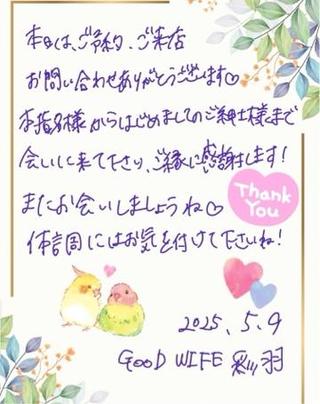 本日は、ご予約、ご来店
お問い合わせありがとうございます♡
本指名様からはじめましてのご紳士様まで
会いに来て下さり、ご縁に感謝します!
またお会いしましょうね♡
Thank
You
体調にはお気を付けて下さいね!
2025.5.9
GOOD WIFE 彩羽